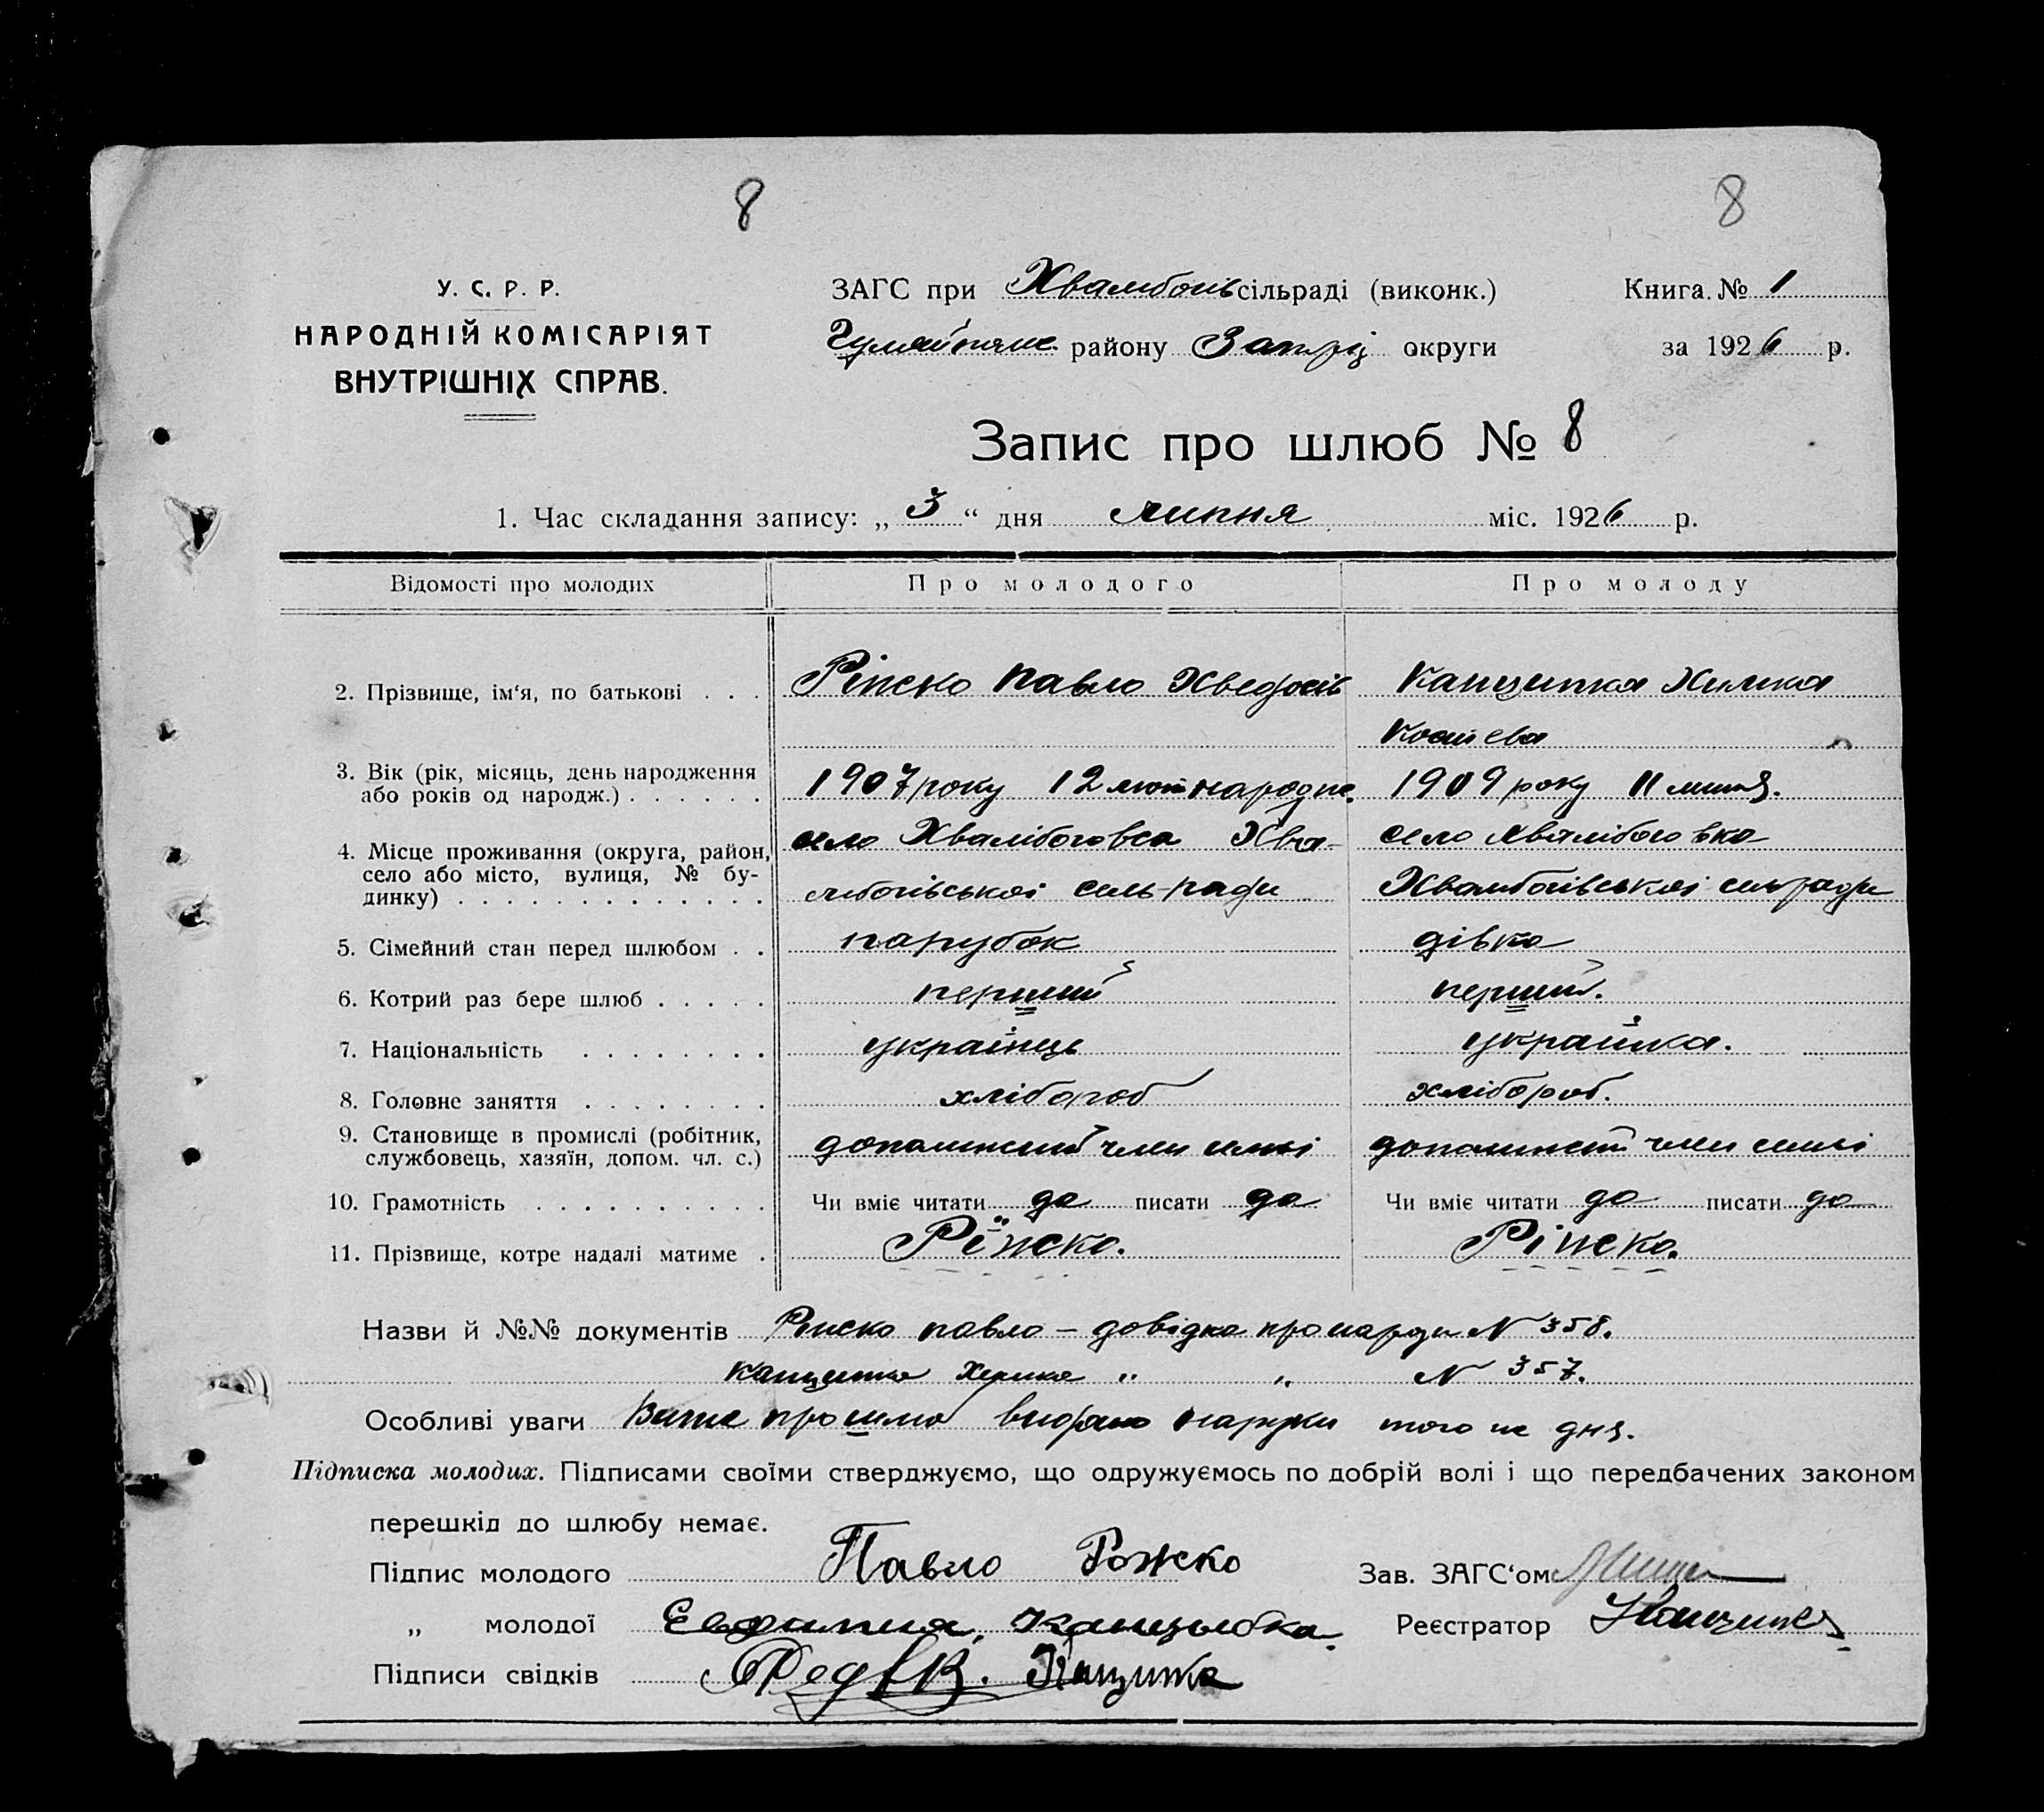 8 8
У. С. Р. Р.
НАРОДНІЙ КОМІСАРІЯТ
ВНУТРІШНІХ СПРАВ.
ЗАГС при сільраді (виконк.)
району округи
Книга № 1
за 1926 р.
Запис про шлюб № 8
1. Час складання запису: „ 3 “ дня липня міс. 1926 р.
Відомості про молодих Про молодого Про молоду
2. Прізвище, ім‘я, по батькові . . . Ріпско Павло Кащипка Химка
3. Вік (рік, місяць, день народження
або років од народж.) . . . . . . 1907 року 12 1909 року 11
4. Місце проживання (округа, район, село Хвалібоговка Хва- село Хвалібоговка
село або місто, вулиця, № бу-
динку) . . . . . . . . . . . . . лібогівської сель ради Хвалибогівської сельради
5. Сімейний стан перед шлюбом . . парубок дівка
6. Котрий раз бере шлюб . . . . . перший перший.
7. Національність . . . . . . . . українець українка.
8. Головне заняття . . . . . . . . хлібороб хлібороб.
9. Становище в промислі (робітник,
службовець, хазяїн, допом. чл. с.) член семьі член семьі
10. Грамотність . . . . . . . . . . Чи вміє читати да писати да Чи вміє читати да писати да
11. Прізвище, котре надалі матиме . Ріпско. Ріпско.
Назви й №№ документів Ріпско павло – довідка про народж N 358.
Кащипка Химка " " N 357.
Особливі уваги того же дня.
Підписка молодих. Підписами своїми стверджуємо, що одружуємось по добрій волі і що передбачених законом
перешкід до шлюбу немає.
Підпис молодого Павло Рожско Зав. ЗАГС‘ом
„ молодої Реєстратор
Підписи свідків